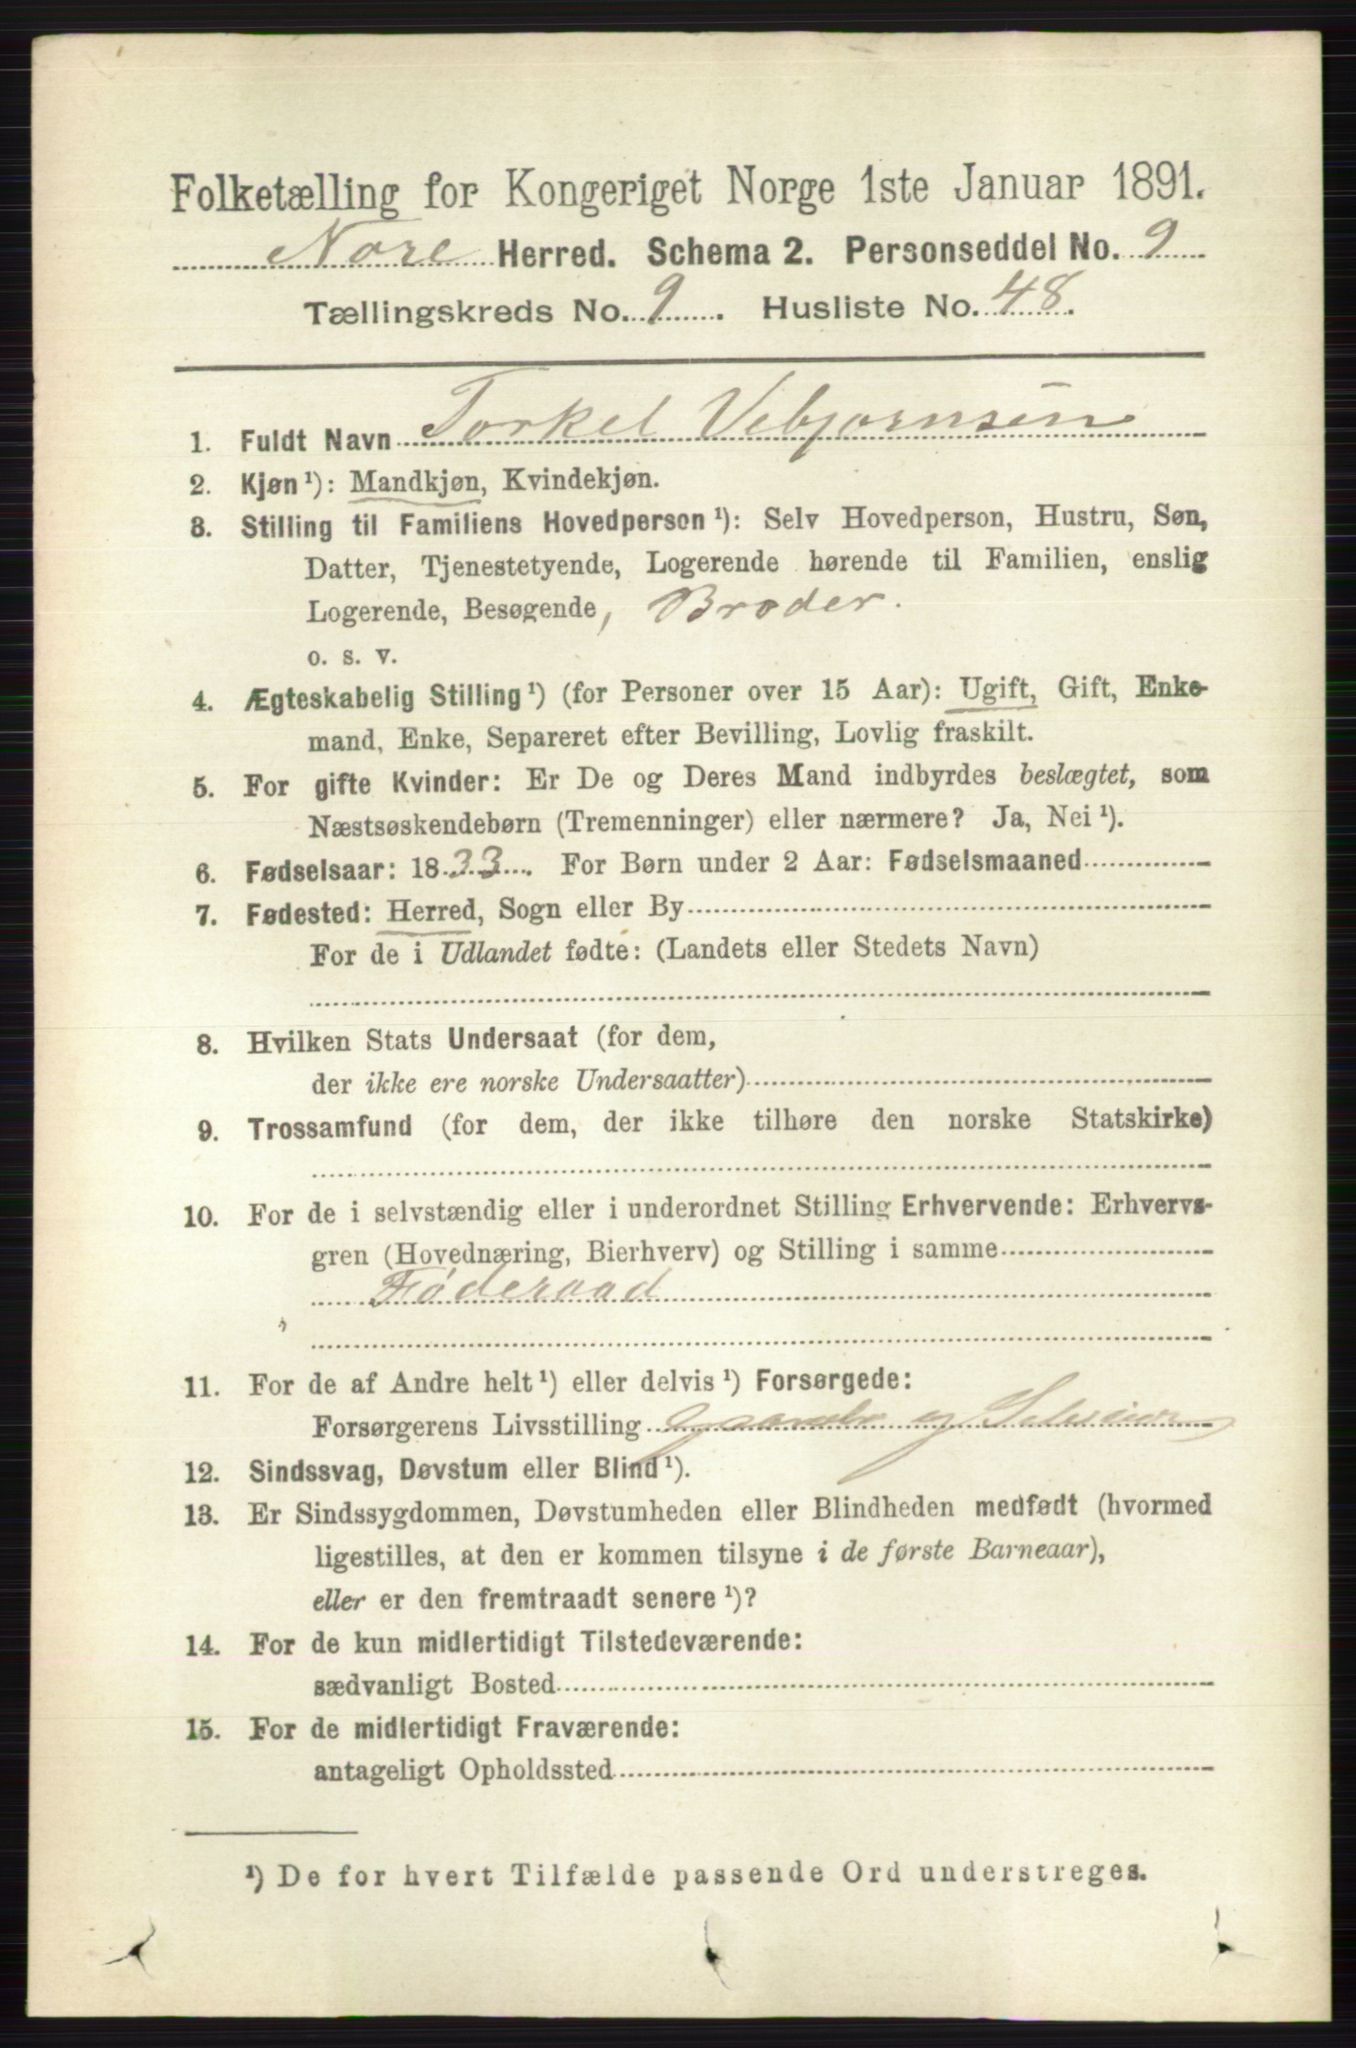 Folketælling for Kongeriget Norge 1ste Januar 1891.
Nore Herred. Schema 2. Personseddel No. 9
Tællingskreds No. 9. Husliste No. 48.
1. Fuldt Navn Torkel Vebjørnsen
2. Kjøn ¹): Mandkjøn, Kvindekjøn.
3. Stilling til Familiens Hovedperson ¹): Selv Hovedperson, Hustru, Søn,
Datter, Tjenestetyende, Logerende hørende til Familien, enslig
Logerende, Besøgende, Broder.
o. s. v.
4. Ægteskabelig Stilling ¹) (for Personer over 15 Aar): Ugift, Gift, Enke-
mand, Enke, Separeret efter Bevilling, Lovlig fraskilt.
5. For gifte Kvinder: Er De og Deres Mand indbyrdes beslægtet, som
Næstsøskendebørn (Tremenninger) eller nærmere? Ja, Nei ¹).
6. Fødselsaar: 1833. For Børn under 2 Aar: Fødselsmaaned
7. Fødested: Herred, Sogn eller By
For de i Udlandet fødte: (Landets eller Stedets Navn)
8. Hvilken Stats Undersaat (for dem,
der ikke ere norske Undersaatter)
9. Trossamfund (for dem, der ikke tilhøre den norske Statskirke)
10. For de i selvstændig eller i underordnet Stilling Erhvervende: Erhvervs-
gren (Hovednæring, Bierhverv) og Stilling i samme
Føderaad
11. For de af Andre helt ¹) eller delvis ¹) Forsørgede:
Forsørgerens Livsstilling og
12. Sindssvag, Døvstum eller Blind ¹).
13. Er Sindssygdommen, Døvstumheden eller Blindheden medfødt (hvormed
ligestilles, at den er kommen tilsyne i de første Barneaar),
eller er den fremtraadt senere ¹)?
14. For de kun midlertidigt Tilstedeværende:
sædvanligt Bosted
15. For de midlertidigt Fraværende:
antageligt Opholdssted
¹) De for hvert Tilfælde passende Ord understreges.